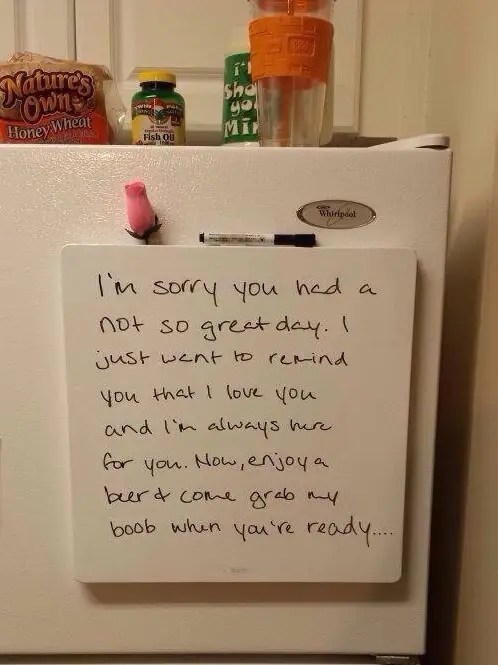 Nature's
Own
Honey Wheat
Fish Oil
Whirlpool
I'm sorry you had a
not so great day. I
just want to remind
you that I love you
and I'm always here
for you. Now, enjoy a
beer & come grab my
boob when you're ready....